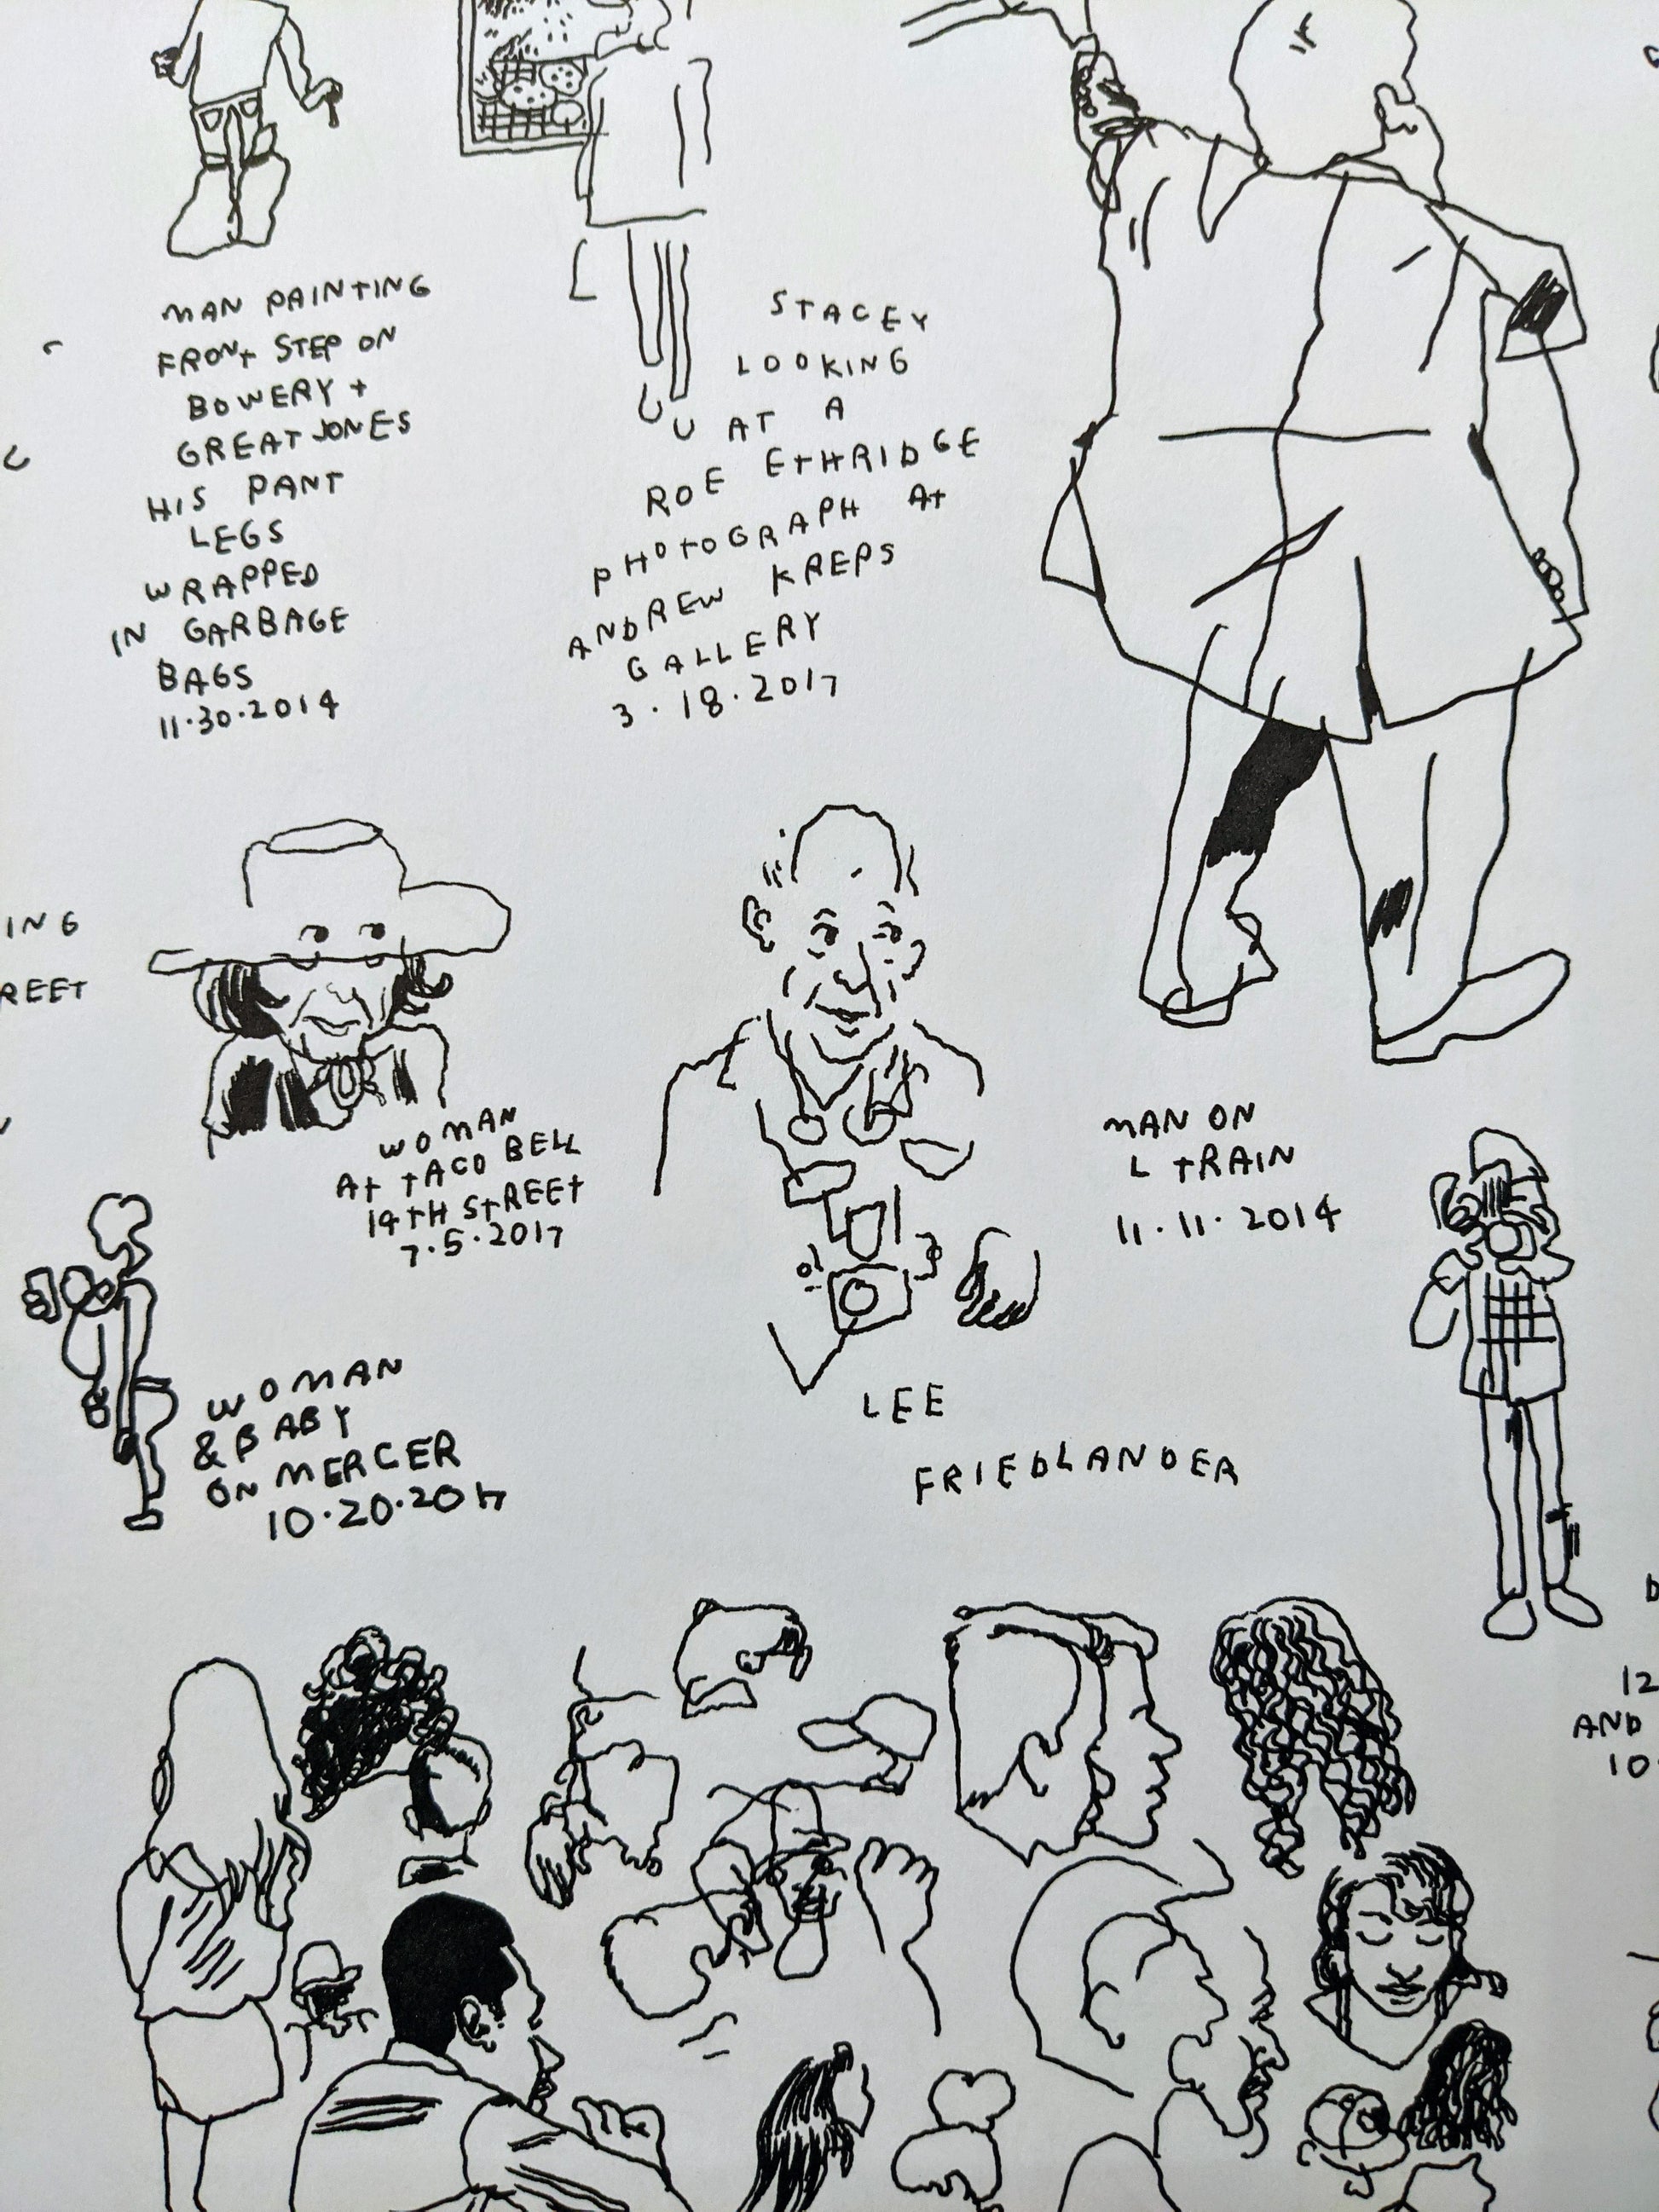 MAN PAINTING
FRONT STEP ON
BOWERY +
GREAT JONES
HIS PANT
LEGS
WRAPPED
IN GARBAGE
BAGS
11·30·2014
STACEY
LOOKING
AT A
ROE ETHRIDGE
PHOTOGRAPH AT
ANDREW KREPS
GALLERY
3·18·2017
ING
REET
WOMAN
AT TACO BELL
14TH STREET
7·5·2017
MAN ON
L TRAIN
11·11·2014
WOMAN
& BABY
ON MERCER
10·20·2017
LEE
FRIEDLANDER
12
AND
10